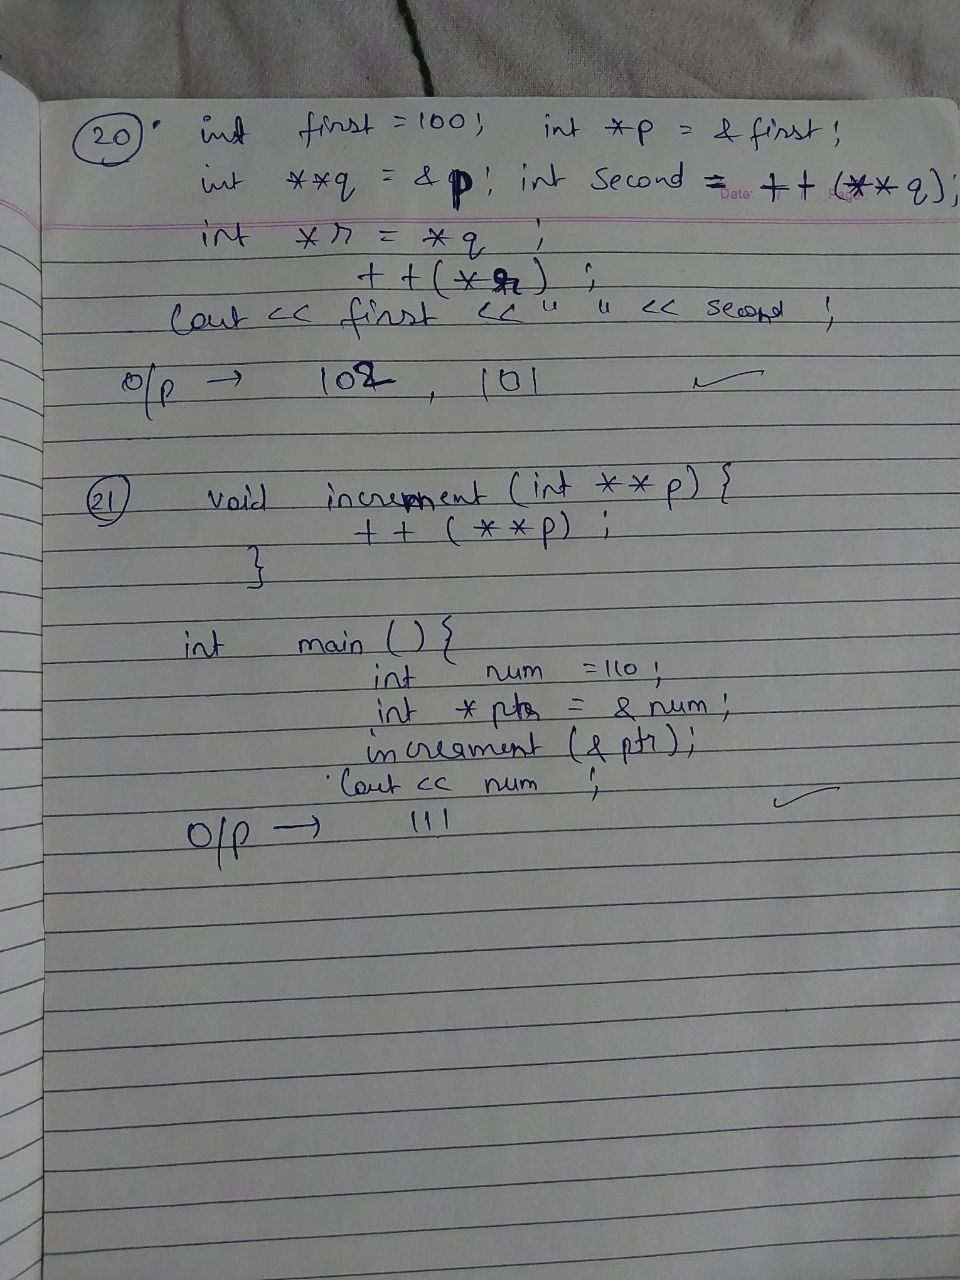 20. int first = 100; int *p = & first;
int **q = & p; int second = ++(**q);
Date: Page:
int *r = *q ;
++(*r) ;
Cout << first << " " << second ;
O/p → 102 , 101 ✓
21 void increment (int **p) {
++ (**p) ;
}
int main () {
int num = 110 ;
int * ptr = & num ;
increament (& ptr);
Cout << num ;
O/p → 111 ✓